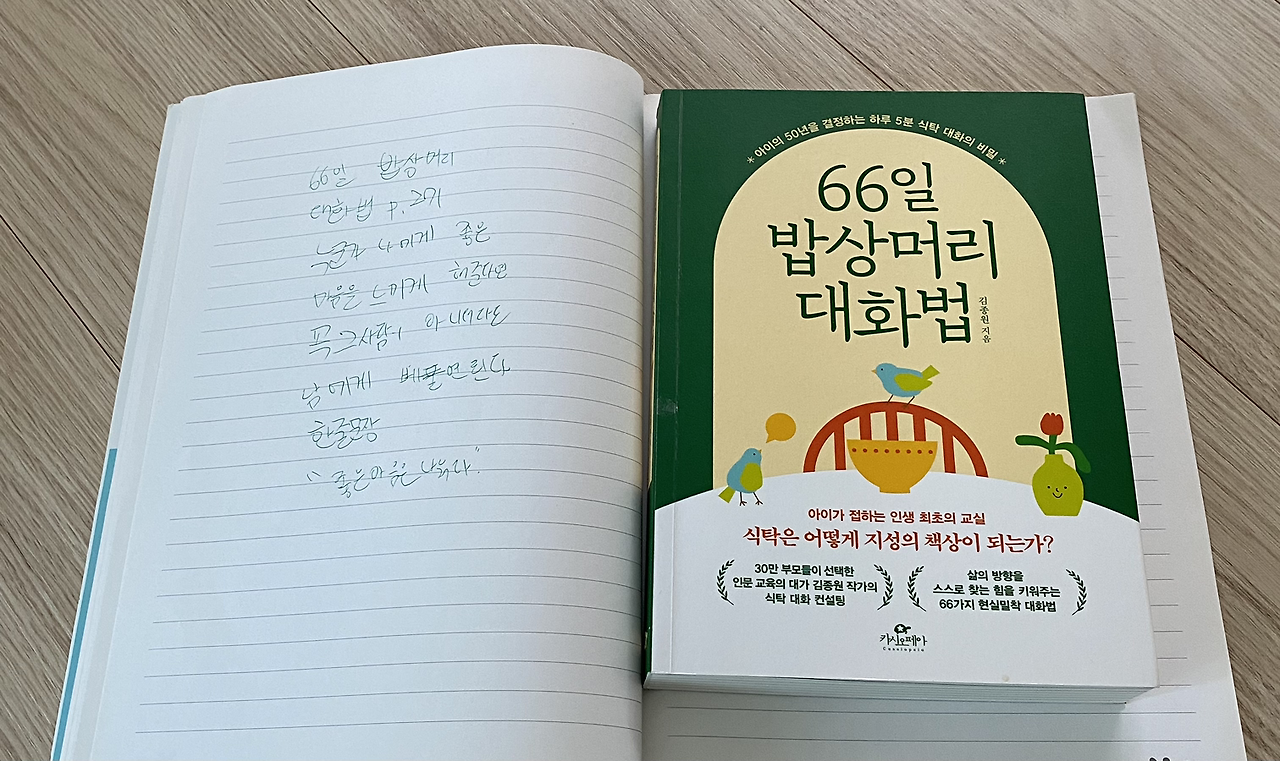 66일 밥상머리
대화법 p. 207
누군가 나에게 좋은
마음을 느끼게 해준다면
꼭 그사람이 아니더라도
남에게 베풀면 된다
한글문장
"좋은마음은 나눈다".
* 아이의 50년을 결정하는 하루 5분 식탁 대화의 비밀 *
66일
밥상머리
대화법
김종원 지음
아이가 접하는 인생 최초의 교실
식탁은 어떻게 지성의 책상이 되는가?
30만 부모들이 선택한
인문 교육의 대가 김종원 작가의
식탁 대화 컨설팅
삶의 방향을
스스로 찾는 힘을 키워주는
66가지 현실밀착 대화법
카시오페아
Cassiopeia